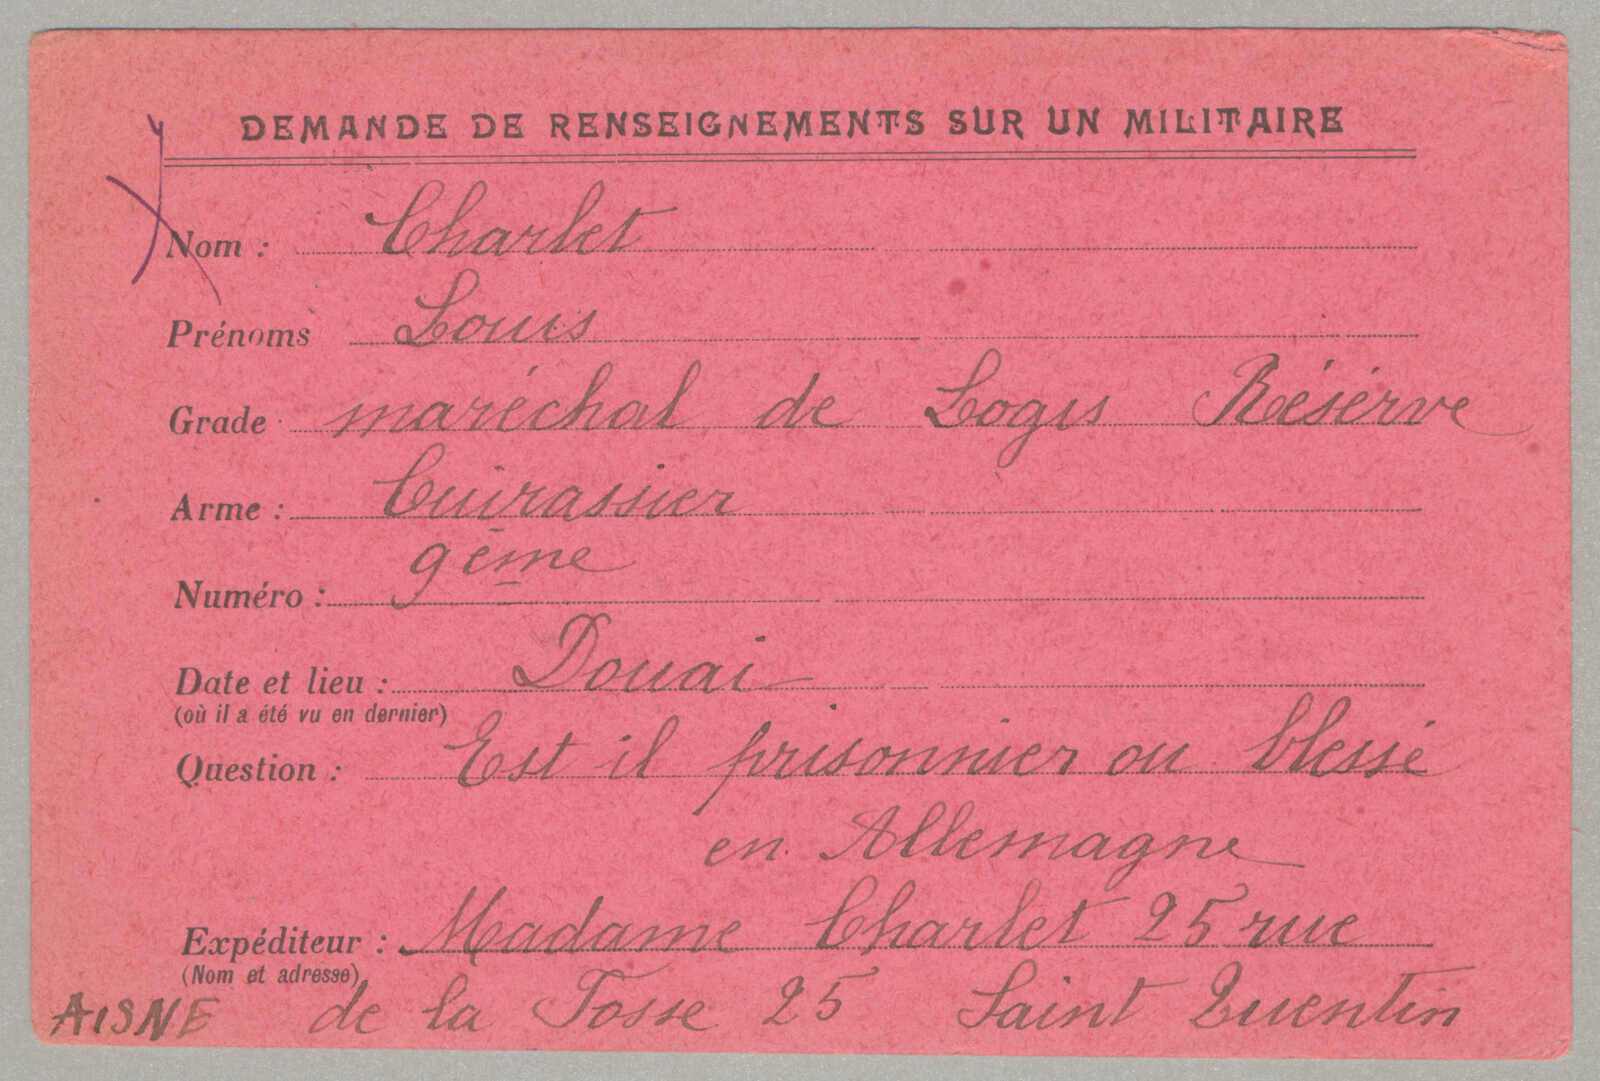 DEMANDE DE RENSEIGNEMENTS SUR UN MILITAIRE
Nom : Charlet
Prénoms Louis
Grade maréchal de Logis Résérve
Arme : Cuirassier
Numéro : 9ème
Date et lieu : Douai
(où il a été vu en dernier)
Question : Est il prisonnier ou blessé
en Allemagne
Expéditeur : Madame Charlet 25 rue
(Nom et adresse)
AISNE de la Fosse 25 Saint Quentin